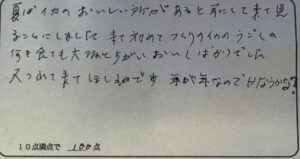 夏はイカのおいしい所があると耳にして来て見
ることにしました 来て初めてつくりのイカのうごくの
何を食べても大阪とちがいおいしいばかりでした
又つれて来てほしいねです 年が年なのでかなうかな?
10点満点で 100点